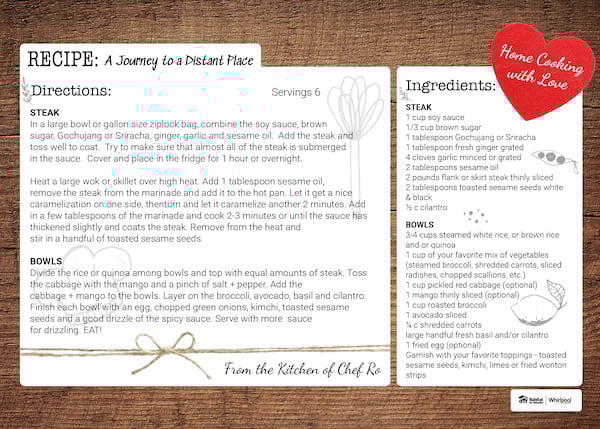 RECIPE: A Journey to a Distant Place
Home Cooking
with Love
Directions:
Servings 6
STEAK
In a large bowl or gallon size ziplock bag, combine the soy sauce, brown
sugar, Gochujang or Sriracha, ginger, garlic and sesame oil. Add the steak and
toss well to coat. Try to make sure that almost all of the steak is submerged
in the sauce. Cover and place in the fridge for 1 hour or overnight.
Heat a large wok or skillet over high heat. Add 1 tablespoon sesame oil,
remove the steak from the marinade and add it to the hot pan. Let it get a nice
caramelization on one side, thentum and let it caramelize another 2 minutes. Add
in a few tablespoons of the marinade and cook 2-3 minutes or until the sauce has
thickened slightly and coats the steak. Remove from the heat and
stir in a handful of toasted sesame seeds
BOWLS
Divide the rice or quinoa among bowls and top with equal amounts of steak. Toss
the cabbage with the mango and a pinch of salt + pepper. Add the
cabbage + mango to the bowls. Layer on the broccoli, avocado, basil and cilantro.
Finish each bowl with an egg, chopped green onions, kimchi, toasted sesame
seeds and a good drizzle of the spicy sauce. Serve with more sauce
for drizzling. EAT!
From the Kitchen of Chef Ro
Ingredients:
STEAK
1 cup soy sauce
1/3 cup brown sugar
1 tablespoon Gochujang or Sriracha
1 tablespoon fresh ginger grated
4 cloves garlic minced or grated
2 tablespoons sesame oil
2 pounds flank or skirt steak thinly sliced
2 tablespoons toasted sesame seeds white
& black
½ c cilantro
BOWLS
3-4 cups steamed white rice, or brown rice
and or quinoa
1 cup of your favorite mix of vegetables
(steamed broccoli, shredded carrots, sliced
radishes, chopped scallions, etc.)
1 cup pickled red cabbage (optional)
1 mango thinly sliced (optional)
1 cup roasted broccoli
1 avocado sliced
¼ c shredded carrots
large handful fresh basil and/or cilantro
1 fried egg (optional)
Garnish with your favorite toppings - toasted
sesame seeds, kimchi, limes or fried wonton
strips
Habitat
for Humanity
Whirlpool